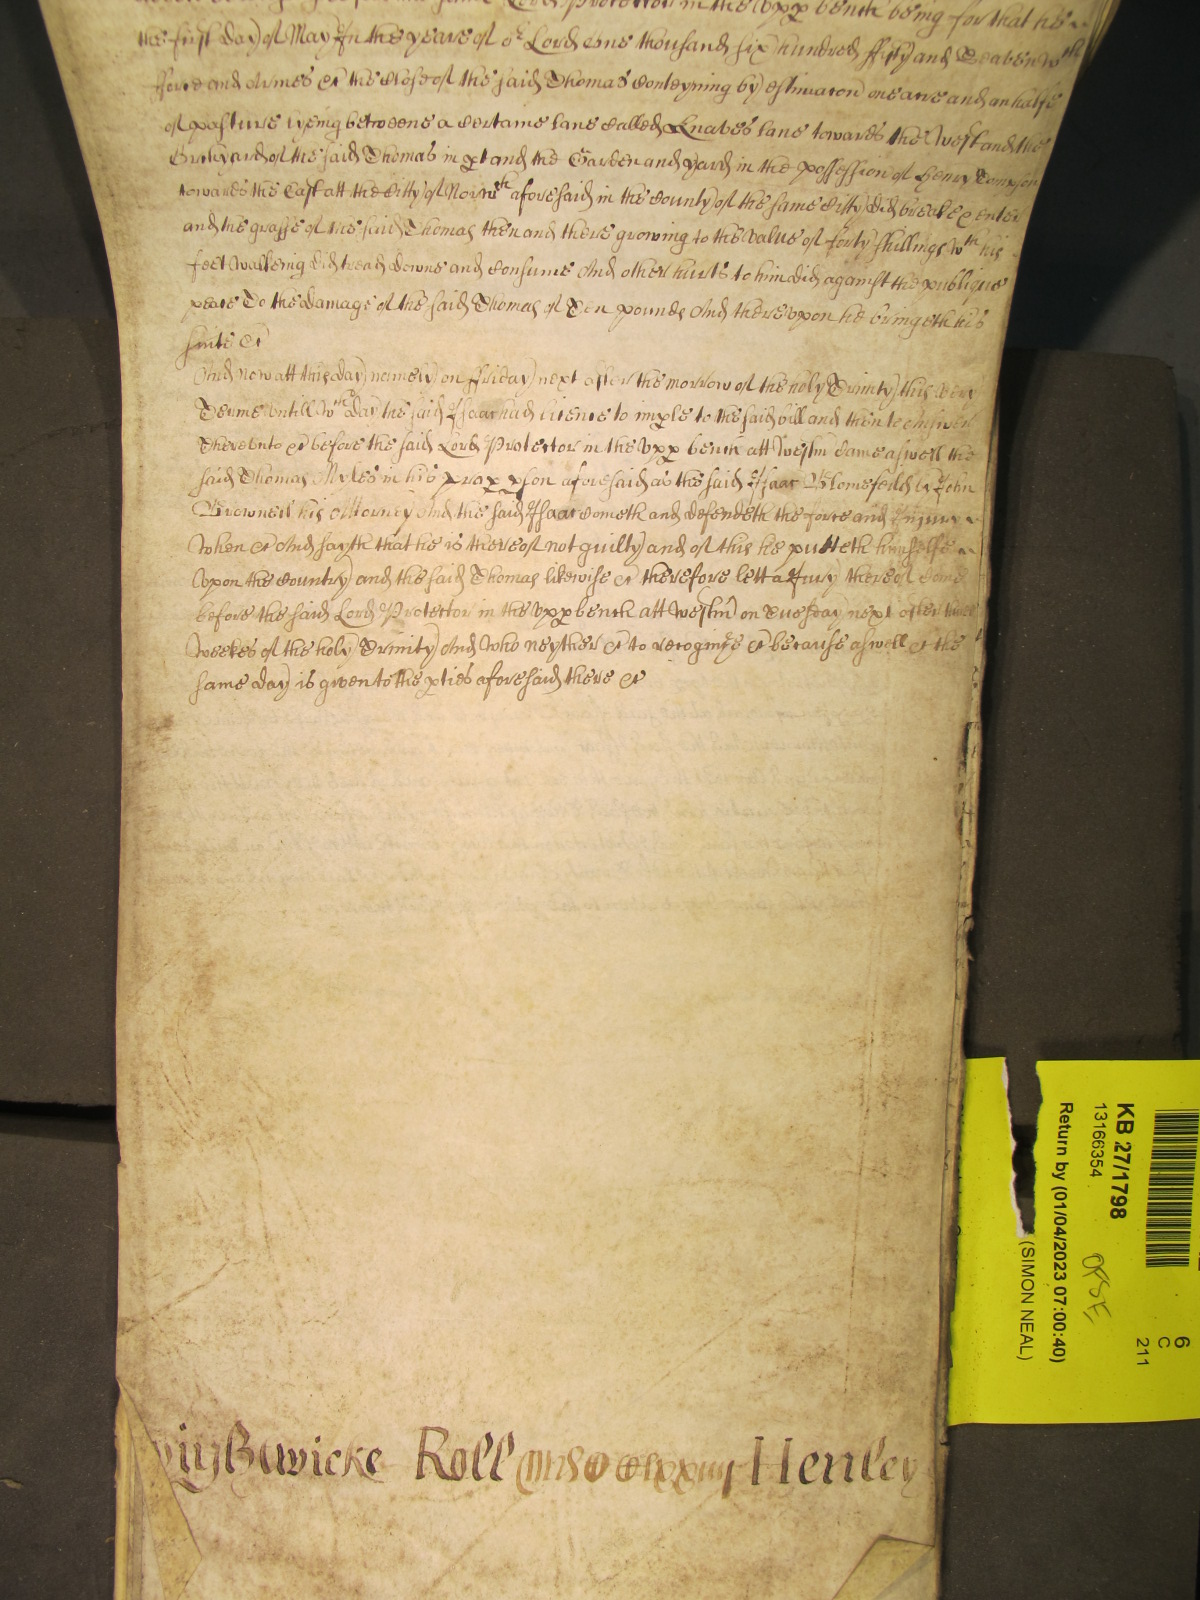 Lord Protector in the Upp bench being for that he
the first day of May In the yeare of or Lord one thousand six hundred fifty and Seaven wth
force and Armes &c the close of the said Thomas conteyning by estimacon one acre and an halfe
of pasture lyeing betweene a certaine lane called Knaves lane towards the West and the
Orchyard of the said Thomas in pt and the Garden and yard in the possession of Henry Tompson
towards the East att the Citty of Norwch aforesaid in the County of the same Citty did breake & enter
and the grasse of the said Thomas then and there growing to the value of forty shillings wth his
feet walkeing did tread downe and consume And other hurts to him did against the publique
peace To the damage of the said Thomas of Ten pounds And thereupon he bringeth his
suite &c
And now att this day namely on Friday next after the morrow of the holy Trinity this very
Terme untill wch day the said Isaac had licence to imple to the said bill and then to answer
Thereunto &c before the said Lord Protector in the Upp bench att Westm came aswell the
said Thomas Myles in his prop pson aforesaid as the said Isaac Blomefeild by John
Browne his Attorney And the said Isaac cometh and defendeth the force and Injury
when &c And sayth that he is thereof not guilty and of this he putteth himselfe
Upon the Country and the said Thomas likewise &c therefore lett a Jury thereof come
before the said Lord Protector in the upp bench att Westm on Tuesday next after three
weekes of the holy Trinity And who neyther &c to recognize &c because aswell &c the
same day is given to the pties aforesaid there &c
Roll Henley
KB 27/1798
13166354
Return by (01/04/2023 07:00:40)
(SIMON NEAL)
6
C
211